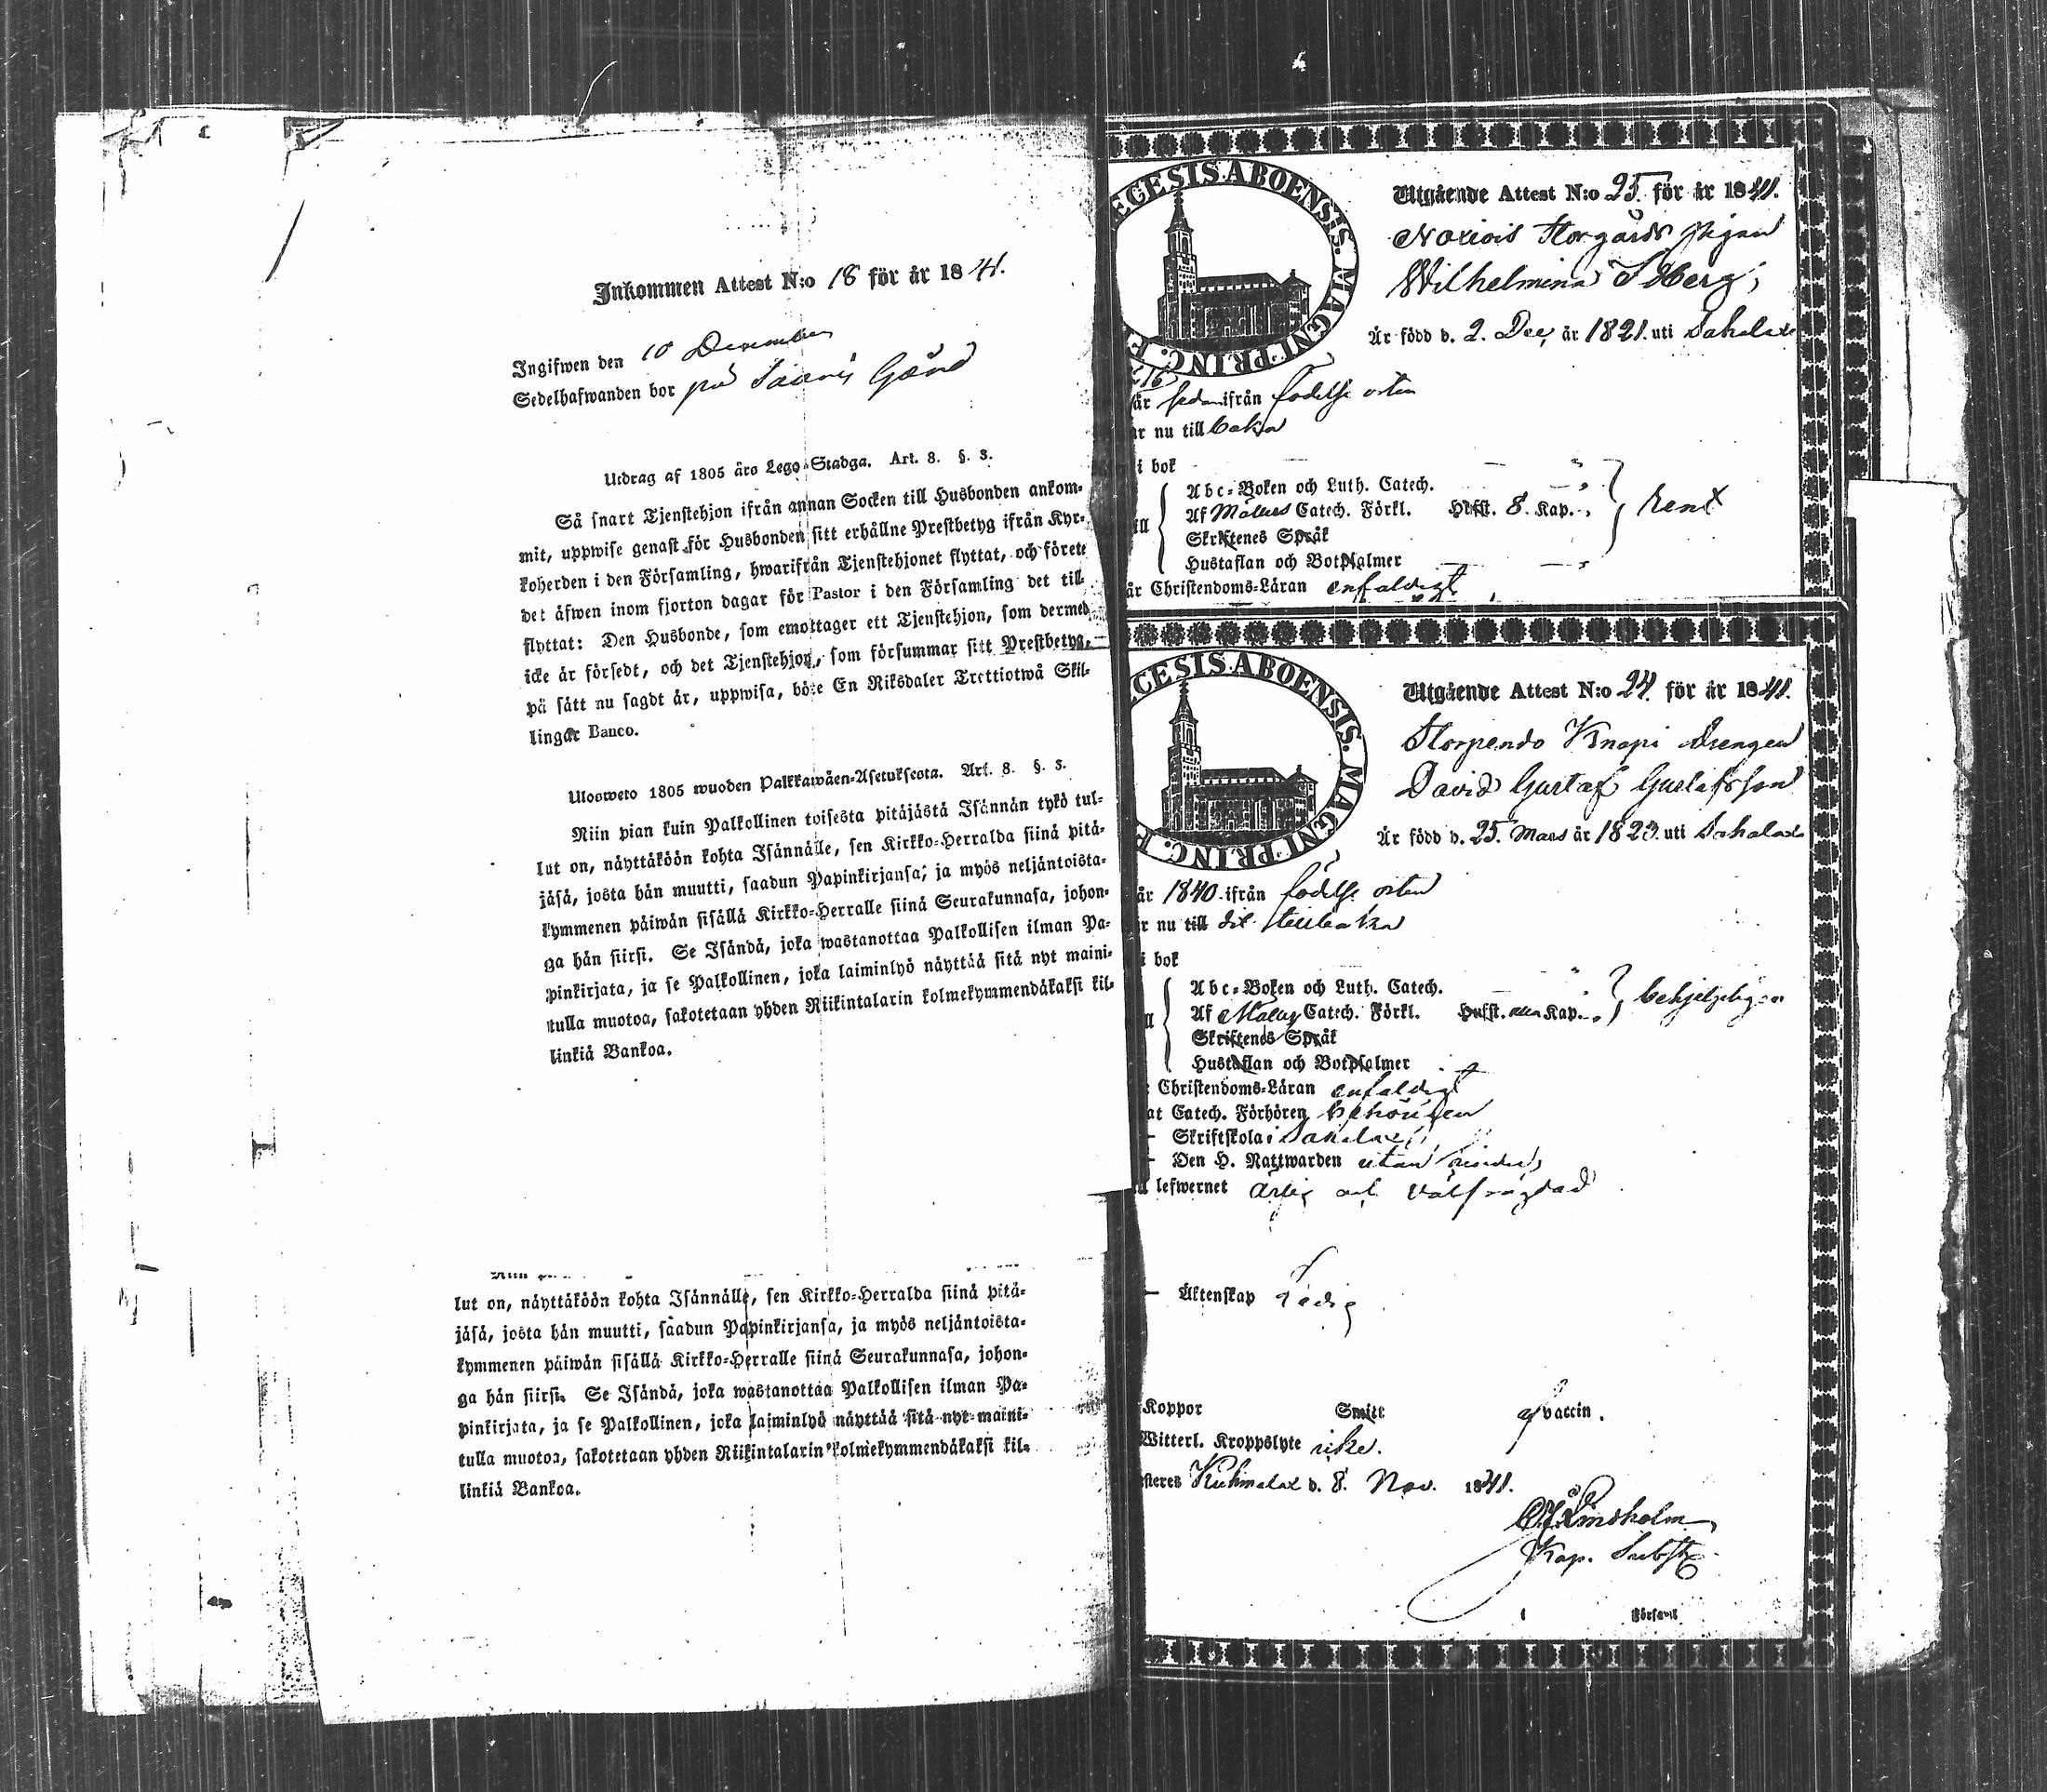 Inkommen Attest N:o 18 för år 1841.
Ingifwen den 10 December
Sedelhafwanden bor på Saaris Gård
Utdrag af 1805 års Lego-Stadga. Art. 8. §. 3.
Så snart Tjenstehjon ifrån annan Socken till Husbonden ankom-
mit, uppwise genast för Husbonden sitt erhållne Prestbetyg ifrån Kyr-
koherden i den Församling, hwarifrån Tjenstehjonet flyttat, och förete
det äfwen inom fjorton dagar för Pastor i den Församling det till-
flyttat: Den Husbonde, som emottager ett Tjenstehjon, som dermed
icke är försedt, och det Tjenstehjon, som försummar sitt Prestbetyg,
på sätt nu sagdt är, uppwisa, böte En Riksdaler Trettiotwå Skil-
lingar Banco.
Ulosweto 1805 wuoden Palkkawäen-Asetuksesta. Art. 8. §. 3.
Niin pian kuin Palkollinen toisesta pitäjästä Isännän tykö tul-
lut on, näyttäköön kohta Isännälle, sen Kirkko-Herralda siinä pitä-
jäsä, josta hän muutti, saadun Papinkirjansa, ja myös neljäntoista-
kymmenen päiwän sisällä Kirkko-Herralle siinä Seurakunnasa, johon-
ga hän siirsi. Se Isändä, joka wastanottaa Palkollisen ilman Pa-
pinkirjata, ja se Palkollinen, joka laiminlyö näyttää sitä nyt maini-
tulla muotoa, sakotetaan yhden Riikintalarin kolmekymmendäkaksi kil-
linkiä Bankoa.
lut on, näyttäköön kohta Isännälle, sen Kirkko-Herralda siinä pitä-
jäsä, josta hän muutti, saadun Papinkirjansa, ja myös neljäntoista-
kymmenen päiwän sisällä Kirkko-Herralle siinä Seurakunnasa, johon-
ga hän siirsi. Se Isändä, joka wastanottaa Palkollisen ilman Pa-
pinkirjata, ja se Palkollinen, joka laiminlyö näyttää sitä nyt maini-
tulla muotoa, sakotetaan yhden Riikintalarin kolmekymmendäkaksi kil-
linkiä Bankoa.
ECESIS ABOENSIS. MAGNI PRINC. F
Utgående Attest N:o 25. för år 1841.
Storgårds pigan
Wilhelmina
Är född d. 2. Dec, år 1821. uti Sahalax
år sedan ifrån födelse orten
är nu till baka
i bok
Abc-Boken och Luth. Catech.
Af Möllers Catech. Förkl. Hufst. 8. Kap.
Skriftenes Språk
Hustaflan och Botpsalmer
rent
år Christendoms-Läran enfaldigt
ECESIS ABOENSIS. MAGNI PRINC. F
Utgående Attest N:o 24. för år 1841.
Knapi drengen
David Gustaf Gustafsson
Är född d. 25. Mars år 1823. uti Sahalax
år 1840. ifrån födelse orten
är nu till
i bok
Abc-Boken och Luth. Catech.
Af Catech. Förkl. Hufst. Kap.
Skriftenes Språk
Hustaflan och Botpsalmer
behjelpligen
Christendoms-Läran enfaldigt
at Catech. Förhören behörigen
Skriftskola i Sahalax
Den H. Nattwarden utan hinder
lefwernet ärlig och välfrägdad
Äktenskap Ledig
Koppor Smitt af vaccin.
Witterl. Kroppslyte icke.
Kuhmalax d. 8. Nov. 1841.
Lindholm
Kap. Subst.
Församl